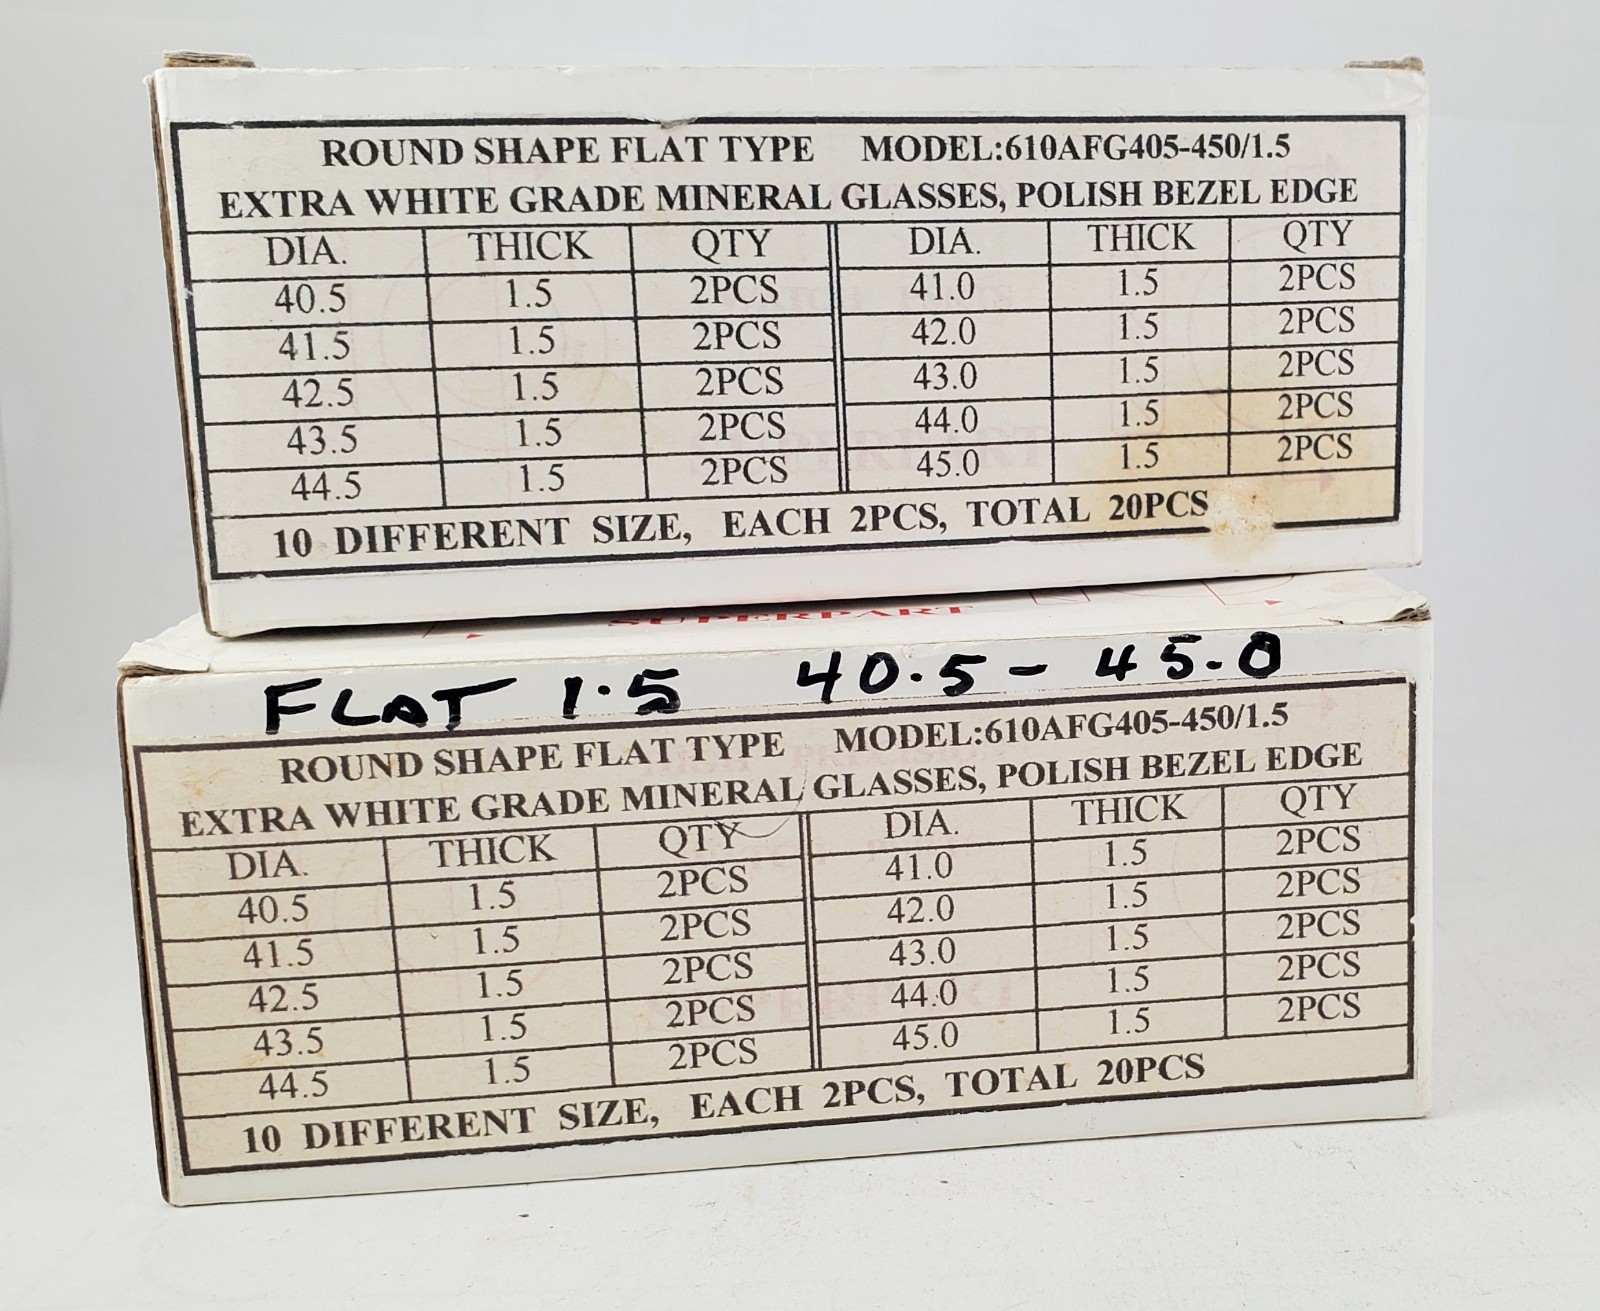 ROUND SHAPE FLAT TYPE MODEL:610AFG405-450/1.5
EXTRA WHITE GRADE MINERAL GLASSES, POLISH BEZEL EDGE
DIA. THICK QTY DIA. THICK QTY
40.5 1.5 2PCS 41.0 1.5 2PCS
41.5 1.5 2PCS 42.0 1.5 2PCS
42.5 1.5 2PCS 43.0 1.5 2PCS
43.5 1.5 2PCS 44.0 1.5 2PCS
44.5 1.5 2PCS 45.0 1.5 2PCS
10 DIFFERENT SIZE, EACH 2PCS, TOTAL 20PCS
SUPERPART
FLAT 1.5 40.5-45.0
ROUND SHAPE FLAT TYPE MODEL:610AFG405-450/1.5
EXTRA WHITE GRADE MINERAL GLASSES, POLISH BEZEL EDGE
DIA. THICK QTY DIA. THICK QTY
40.5 1.5 2PCS 41.0 1.5 2PCS
41.5 1.5 2PCS 42.0 1.5 2PCS
42.5 1.5 2PCS 43.0 1.5 2PCS
43.5 1.5 2PCS 44.0 1.5 2PCS
44.5 1.5 2PCS 45.0 1.5 2PCS
10 DIFFERENT SIZE, EACH 2PCS, TOTAL 20PCS